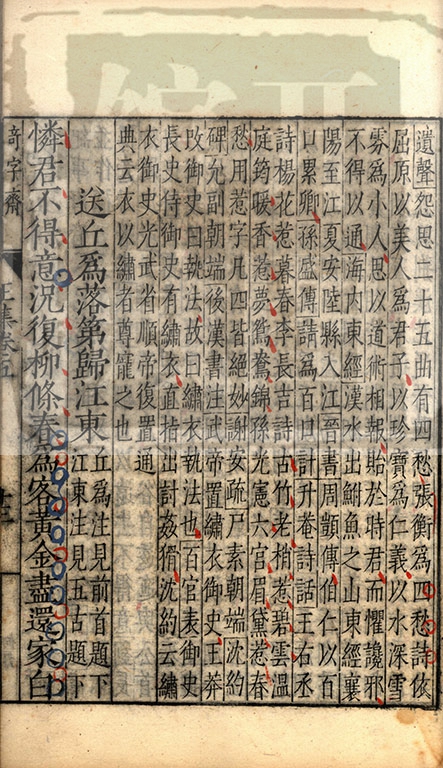 遺聲怨思二十五曲有四愁張衡為四愁詩依
屈原以美人為君子以珍寶為仁義以水深雪
雰為小人思以道術相報貽於時君而懼讒邪
不得以通海内東經漢水出鮒魚之山東經襄
陽至江夏安陸縣入江晉書周顗傳伯仁以百
口累卿孫盛傳請為百口計升菴詩話王右丞
詩楊花惹暮春李長吉詩古竹老梢惹碧雲溫
庭筠暖香惹夢鴛鴦錦孫光憲六宮眉黛惹春
愁用惹字凡四皆絕妙謝安疏尸素朝端沈約
碑允副朝端後漢書注武帝置繡衣御史王莽
攺御史曰執法故曰繡衣執法也百官表御史
長史侍御史有繡衣直指出討姦猾沈約云繡
衣御史光武省順帝復置通
典云衣以繡者尊寵之也
送丘為落第歸江東
丘為注見前首題下
江東注見五古題下
憐君不得意況復栁條春為客黃金盡還家白
奇字齋